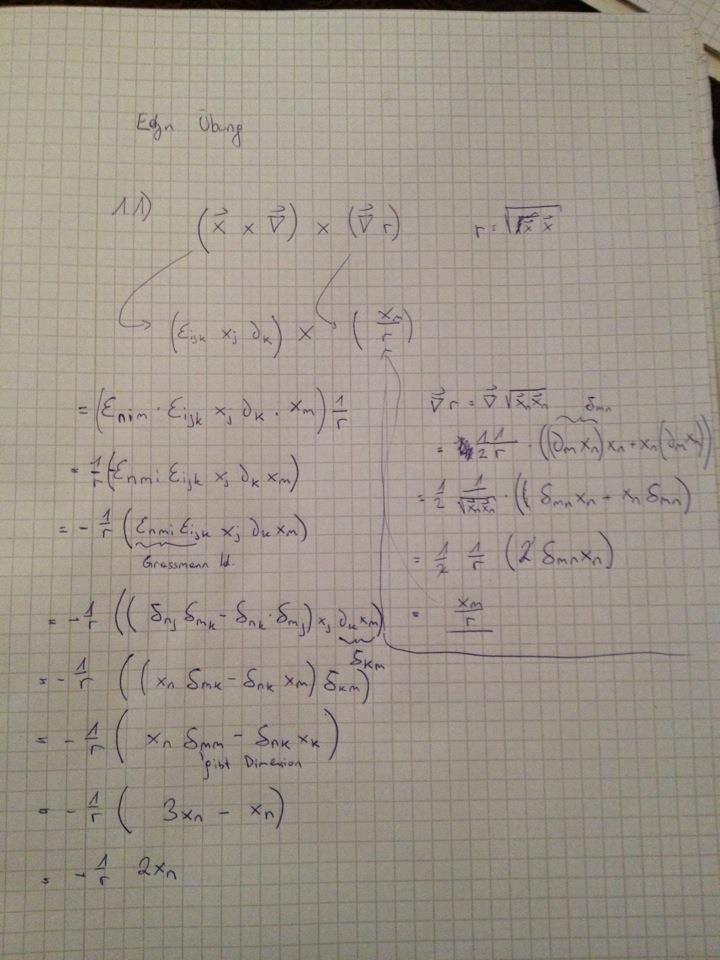 Edyn Übung
11) (x⃗ × ∇⃗) × (∇⃗ r) r = √(x⃗ x⃗)
(ε_ijk x_j ∂_k) × (x_m/r)
= (ε_nim · ε_ijk x_j ∂_k · x_m) 1/r
= 1/r (-ε_nmi ε_ijk x_j ∂_k x_m)
= - 1/r (ε_nmi ε_ijk x_j ∂_k x_m)
Grassmann Id.
= - 1/r ((δ_nj δ_mk - δ_nk · δ_mj) x_j ∂_k x_m)
δ_km
= - 1/r ((x_n δ_mk - δ_nk x_m) δ_km)
= - 1/r (x_n δ_mm - δ_nk x_k)
gibt Dimension
= - 1/r (3x_n - x_n)
= - 1/r 2x_n
∇⃗ r = ∇⃗ √(x⃗_n x⃗_n) δ_mn
= 1/2 1/r · ((∂_m x_n) x_n + x_n (∂_m x_n))
= 1/2 1/√(x⃗_n x⃗_n) · (( δ_mn x_n + x_n δ_mn)
= 1/2 1/r (2 δ_mn x_n)
= x_m/r